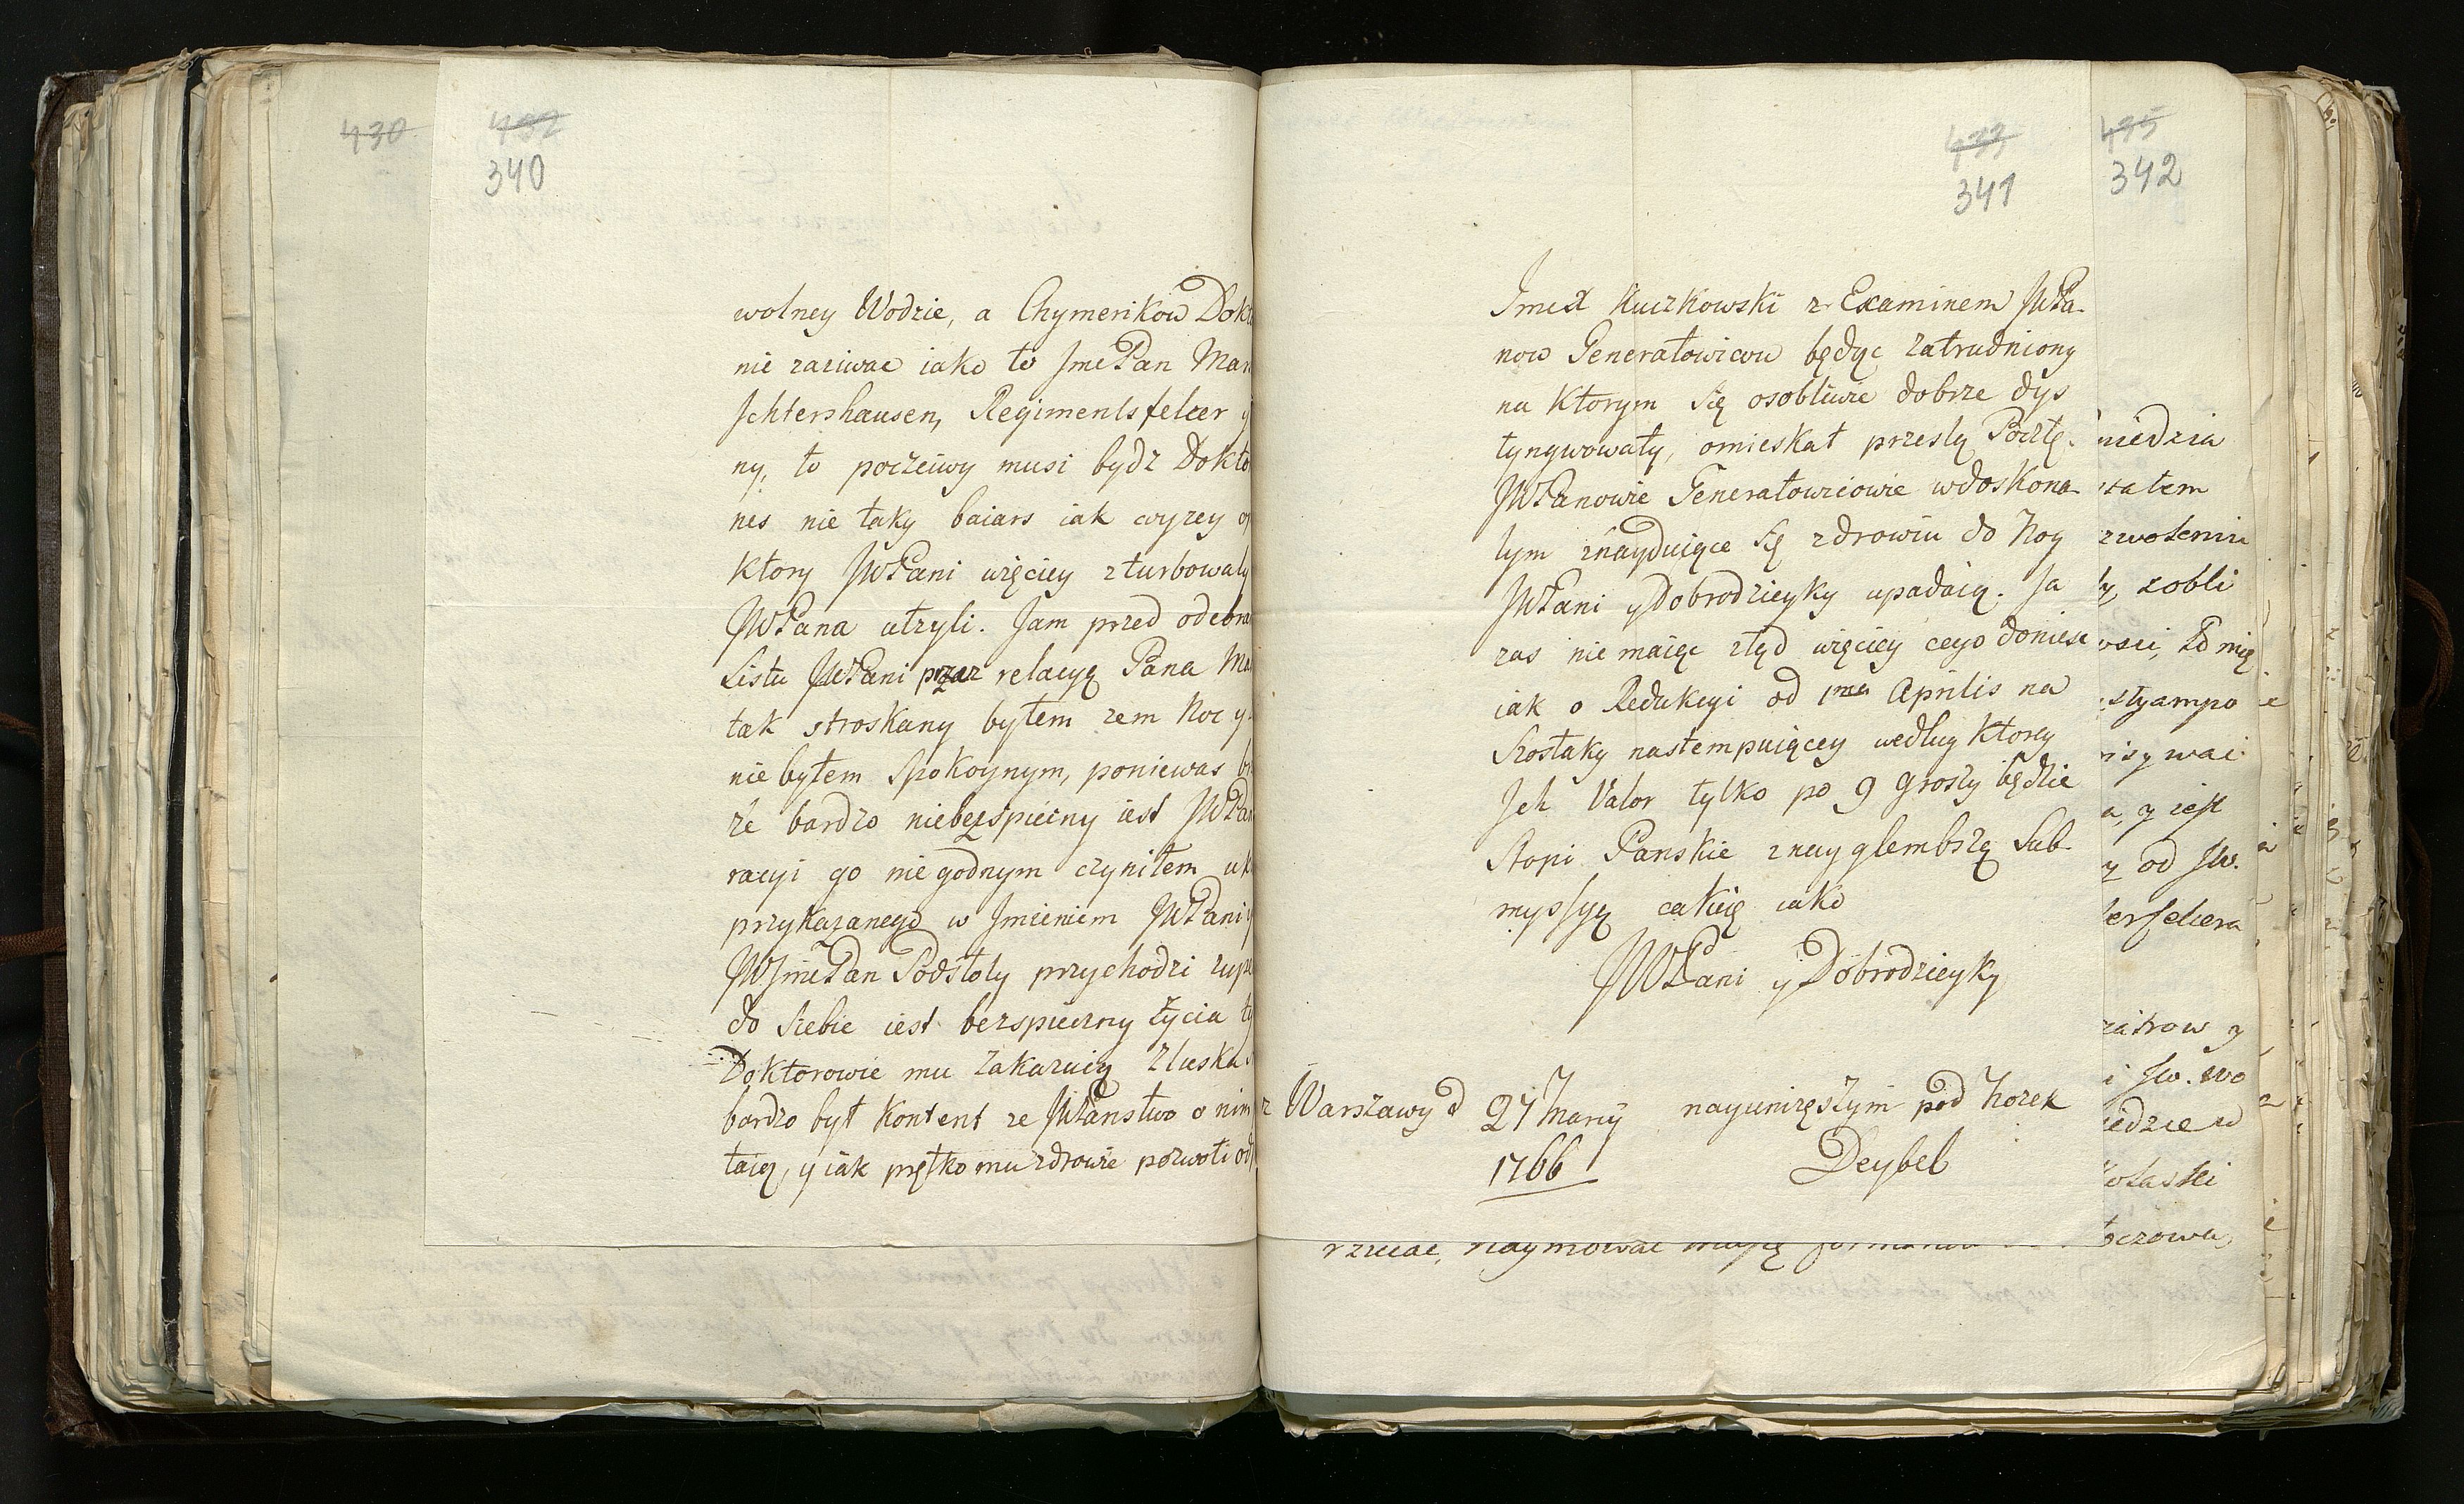 430
432
340
wolney Wodzie, a Chymerikow Dokt
nie zaziwac iako to JmcPan Mar
Ichtershausen, Regimentsfelcer y
ny, to poczciwy musi bydz Dokto
nes nie taky baiars iak wyzey o
Ktory JWPani więciey zturbowaly
JWPana utzyli. Jam przed odebra
Listu JWPani przez relacyą Pana Ma
tak stroskany byłem zem Noc y
nie byłem Spokoynym, poniewas b
ze bardzo niebezspieczny iest JWPan
racyi go niegodnym czyniłem uk
przykazanego w Jmieniem JWPani y
JWJmcPan Podstoly przychodzi zupe
do Siebie iest bezspieczny Życia ty
Doktorowie mu Zakazuią Zluska
bardzo był Kontent ze JWPanstwo o nim
taią, y iak prętko mu zdrowie pozwoli od
433
341
Jmcx Kuczkowski z Examinem JWPa-
now Generałowicow będąc Zatrudniony
na Ktorym Się osobliwie dobrze dys
tyngwowały, omieskał przeslą Pocztę.
JWPanowie Generałowiciowie wdoskona-
lym znayduiące Się zdrowiu do Nog
JWPani y Dobrodzieyky upadaią. Ja
zas nie maiąc ztąd więciey cego doniesc
iak o Redukcyi od 1ma Aprilis na
Szostaky nastempuiącey według Ktorey
Jch Valor tylko po 9 Groszy będzie
Stopi Panskie znayglembszą Sub-
myssyą całuię iako
JWPani y Dobrodzieyky
z Warszawy d 27 Marÿ
1766
nayunięszym pod Nozek
Deybel
435
342
niedzia
satem
zwoleniu
ly, zobli
wsci, Zd mię
styampo
nisywai
a, y iest
y od JW.
lerfelcera
zatrow y
i JW. Wo
iedzie w
Łolaski
bczowa,
rzucac, naymowac muszę